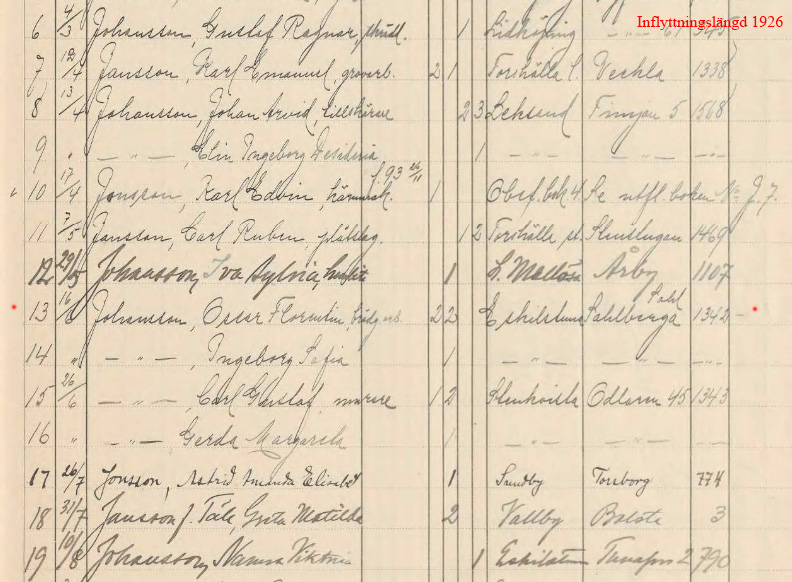 Inflyttningslängd 1926
6 4/3 Johansson, Gustaf Ragnar, 1 Lidköping — " — 61 1345
7 12/4 Jansson, Karl Emanuel, grovarb. 2 1 Torshälla l. Vechla 1338
8 13/4 Johansson, Johan Arvid, 2 3 Leksand 5 1568
9 " — " — , Elin Ingeborg Desideria 1 — " — — " — — " —
f. 93 26/11
10 17/4 Jonsson, Karl Edvin, 1 Obef. bok 4. Se utfl. boken No J. 7.
11 7/5 Jansson, Carl Ruben, plåtslag. 1 2 Torshälla st. Slusstugan 1469
12 29/5 Johansson, Iva Sylvia, 1 L. Mellösa Åby 1107
13 16/6 Johansson, Oscar Florentin, 2 2 Eskilstuna Sahlberga 1342 —
14 " — " — , Ingeborg Sofia 1 — " — — " —
15 26/6 — " — , Carl Gustaf, murare 1 2 Stenkvista Odlaren 45 1343
16 " — " — , Gerda Margareta 1 — " — — " — — " —
17 26/7 Jonsson, Astrid Amanda Elisabet 1 Sundby Torsborg 774
18 31/7 Jansson f. Täle, Greta Matilda 2 Vallby Bolsta 3
19 10/8 Johansson, Nanna Viktoria 1 Eskilstuna Tunafors 2 790